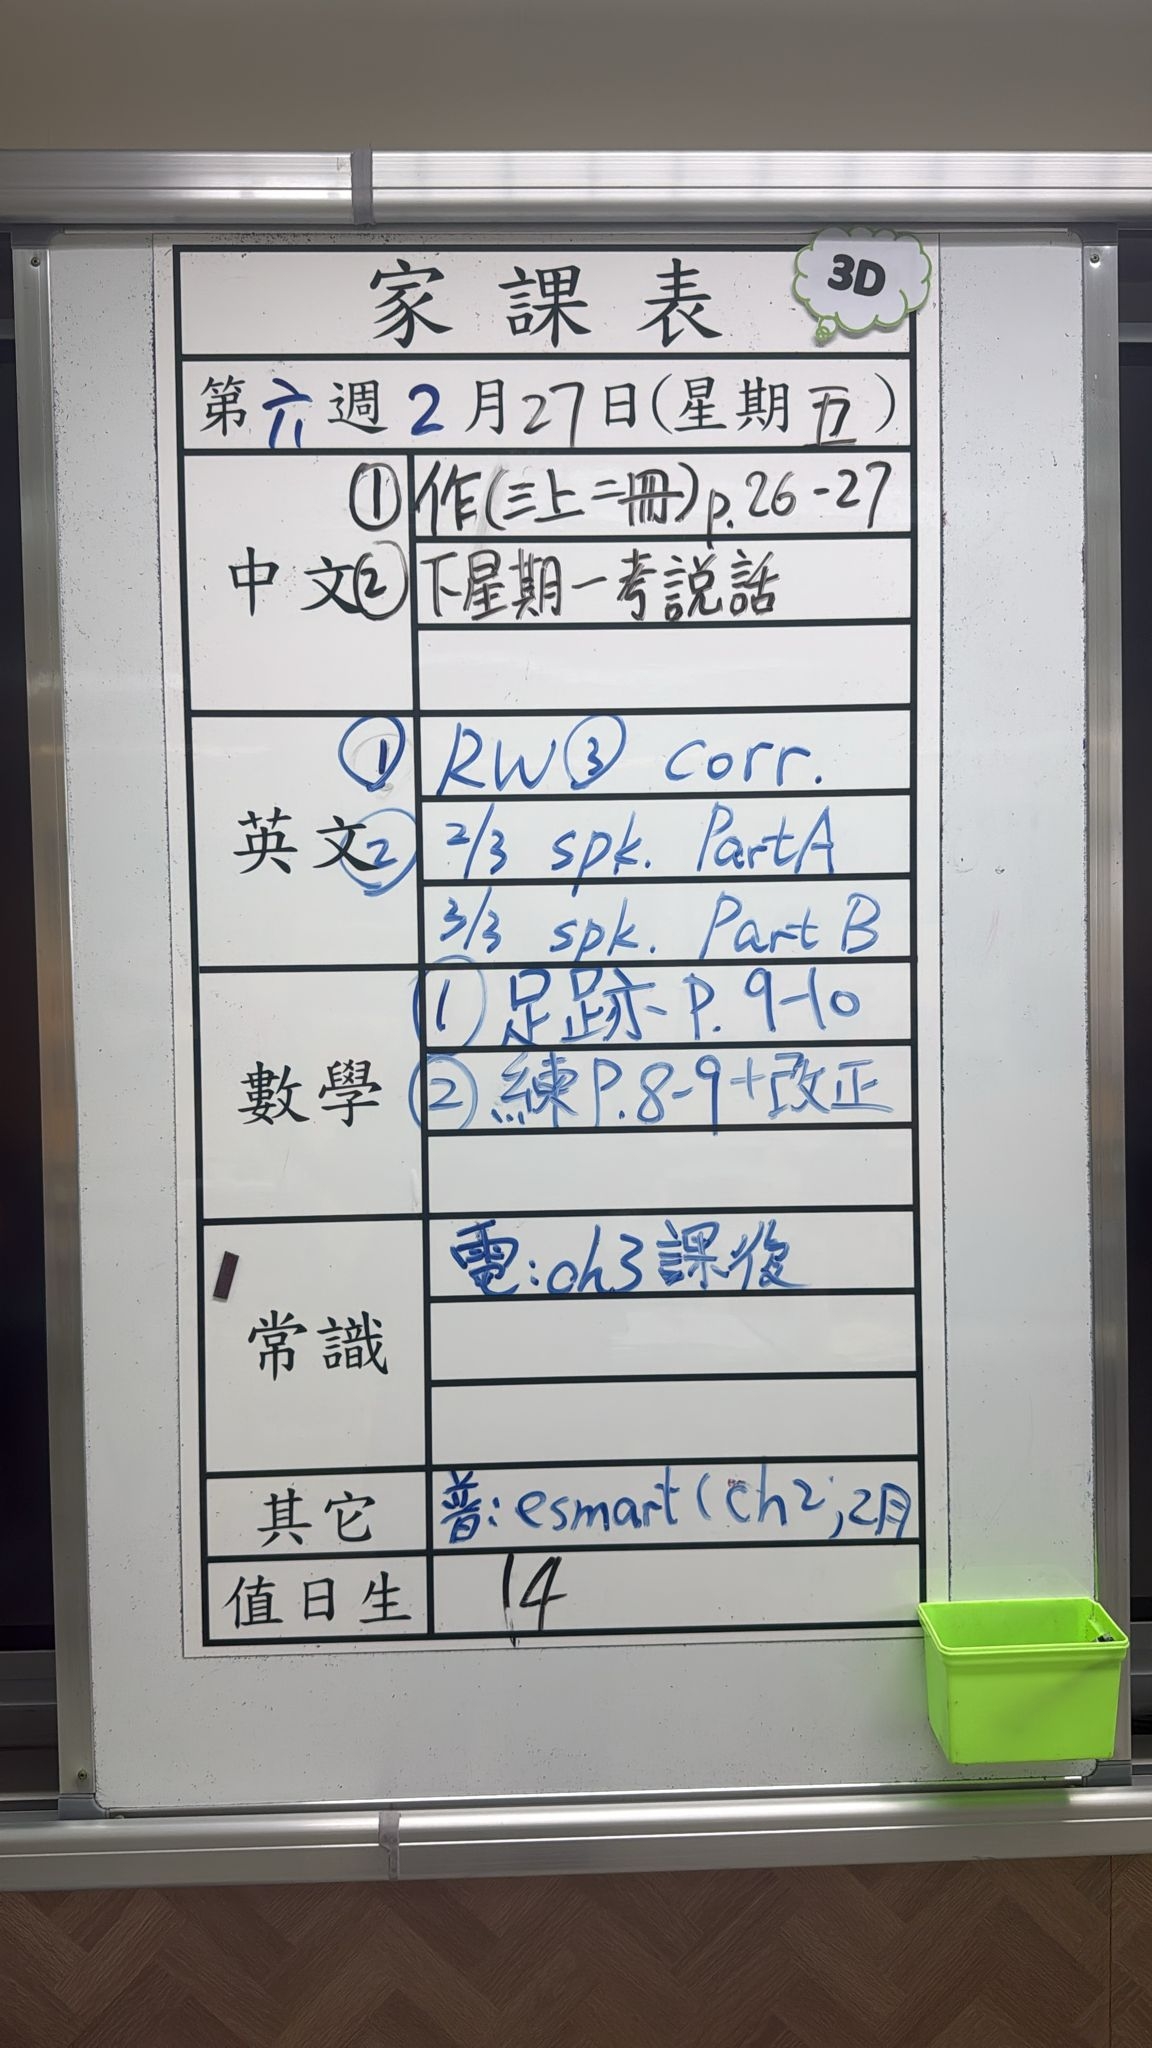 家課表
3D
第六週2月27日(星期五)
中文
① 作(三上二冊)p.26-27
② 下星期一考説話
英文
① RW③ corr.
② 2/3 spk. Part A
3/3 spk. Part B
數學
① 足跡 P.9-10
② 練P.8-9+改正
常識
電:ch3課後
其它
普:esmart(ch2;2月
值日生
14